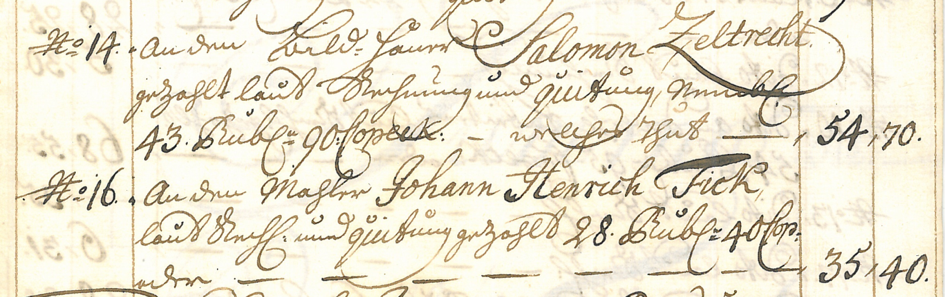 No 14. An den Bild-Hauer Salomon Zeltrecht.
gezahlt laut Rechnung und Quitung,
43. Rubl: 90 Copeck: – welches thut — , 54, 70.
No 16. An den Mahler Johann Henrich Fick,
laut Rech: und Quitung gezahlt 28. Rubl: 40 Cop:
oder — — — — — — — — , 35, 40.